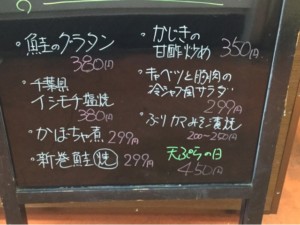 ・鮭のグラタン
380円
・千葉県
イシモチ塩焼
380円
・かぼちゃ煮 299円
・新巻鮭 焼 299円
・かじきの
甘酢炒め 350円
・キャベツと豚肉の
冷シャブ風サラダ
299円
・ぶりカマみそ漬焼
200〜250円
天ぷらの日
450円